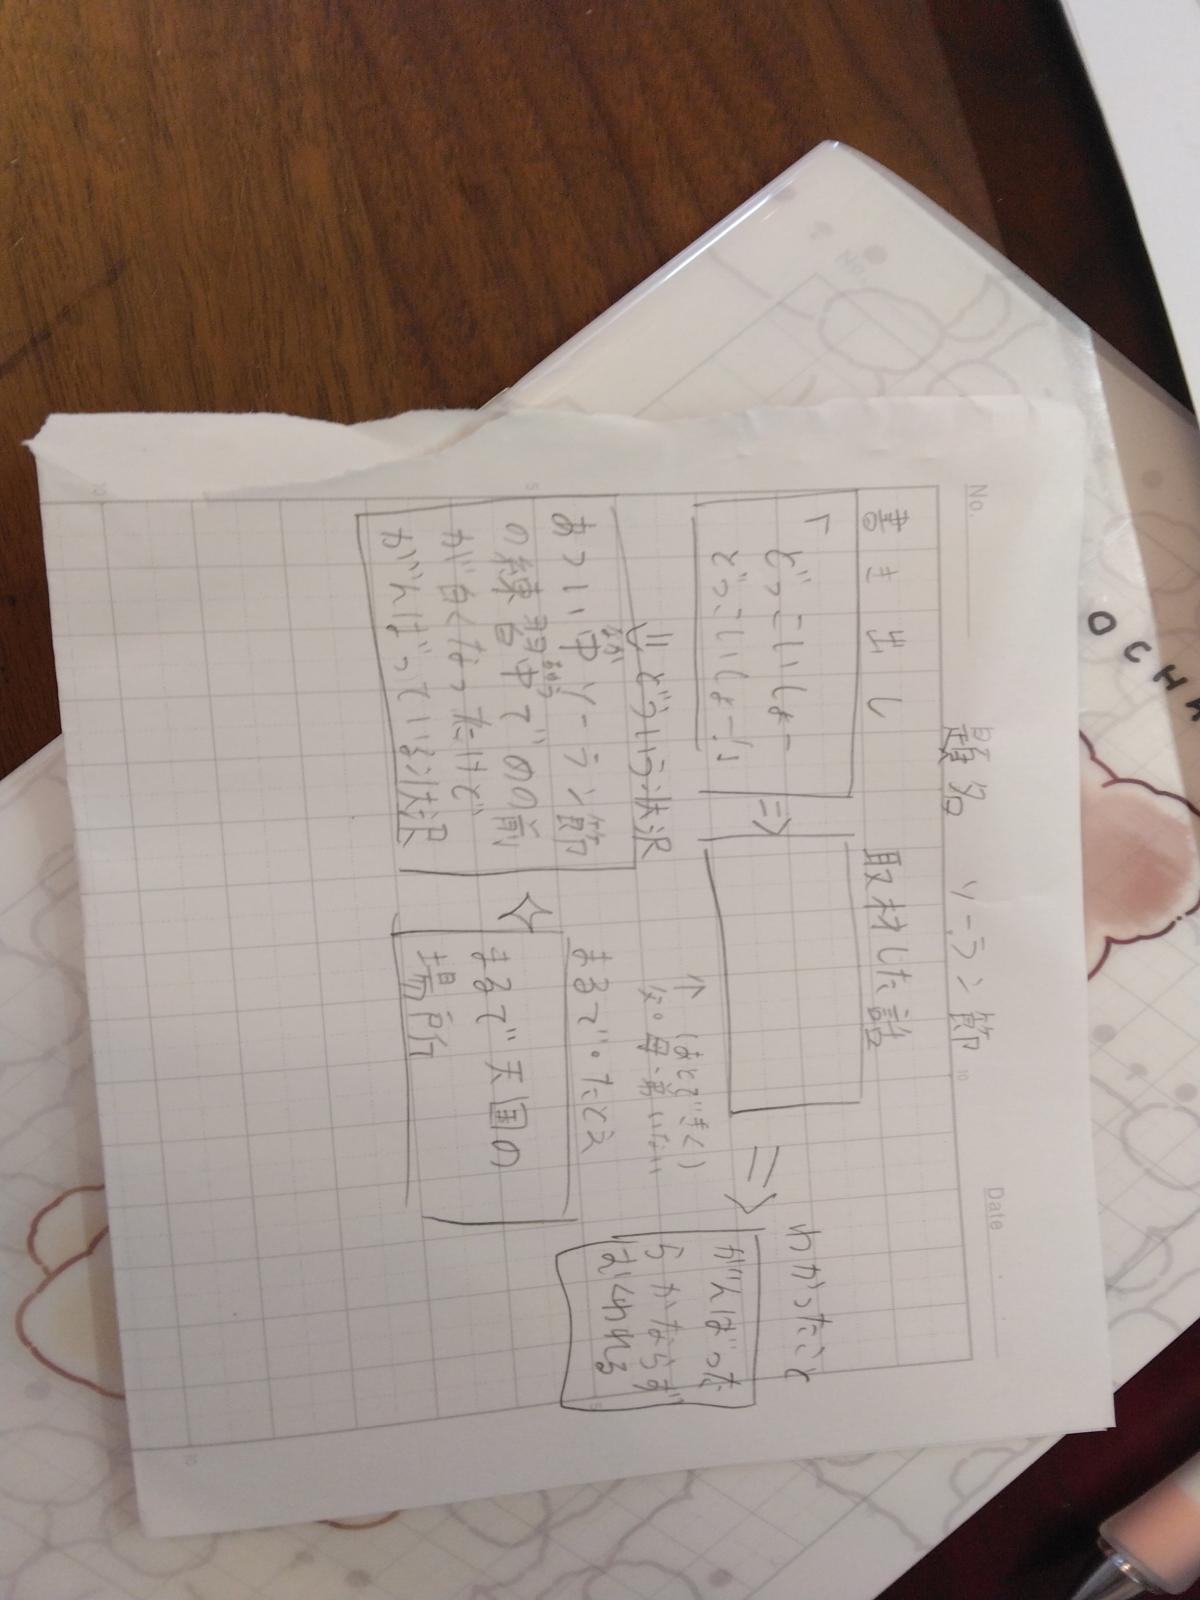 No.
Date
題名　ソーラン節
書き出し
「どっこいしょー
どっこいしょー!」
⇒
取材した話
↑(あとできく)
父・母・弟いない
⇒
わかったこと
がんばった
らかならず
はくわれる
⇓どういう状況
あつい中ソーラン節
の練習中で目の前
が白くなったけど
がんばっている状況
まるで・たとえ
まるで天国の
場所
5
10
10
5
10
OCHA